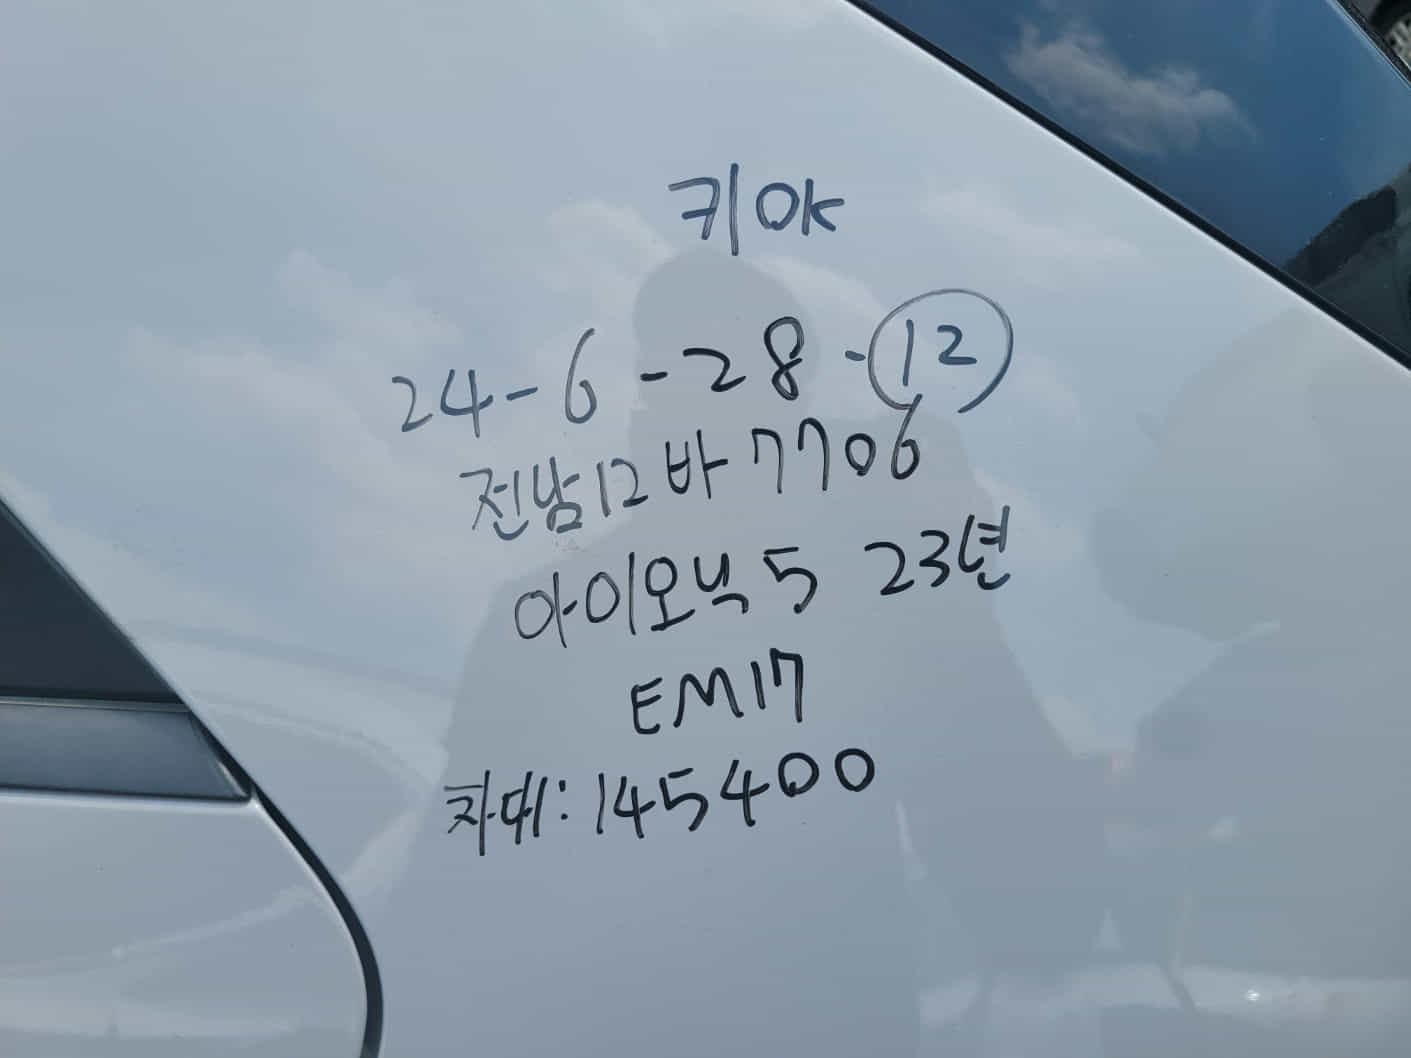 키OK
24-6-28-12
전남12바7706
아이오닉5 23년
EM17
차대:145400